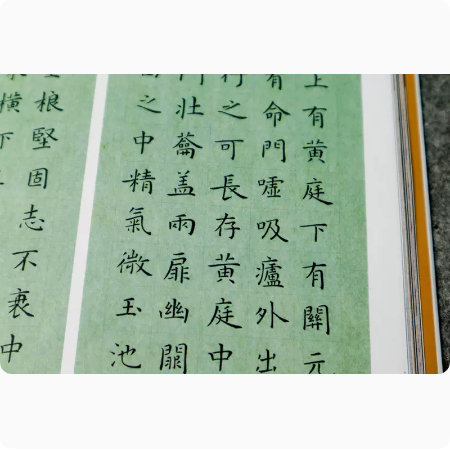 上有黄庭下有關元
有命門噓吸廬外出
行之可長存黄庭中
門壯蘥盖兩扉幽闕
之中精氣微玉池
根堅固志不衰中
橫下